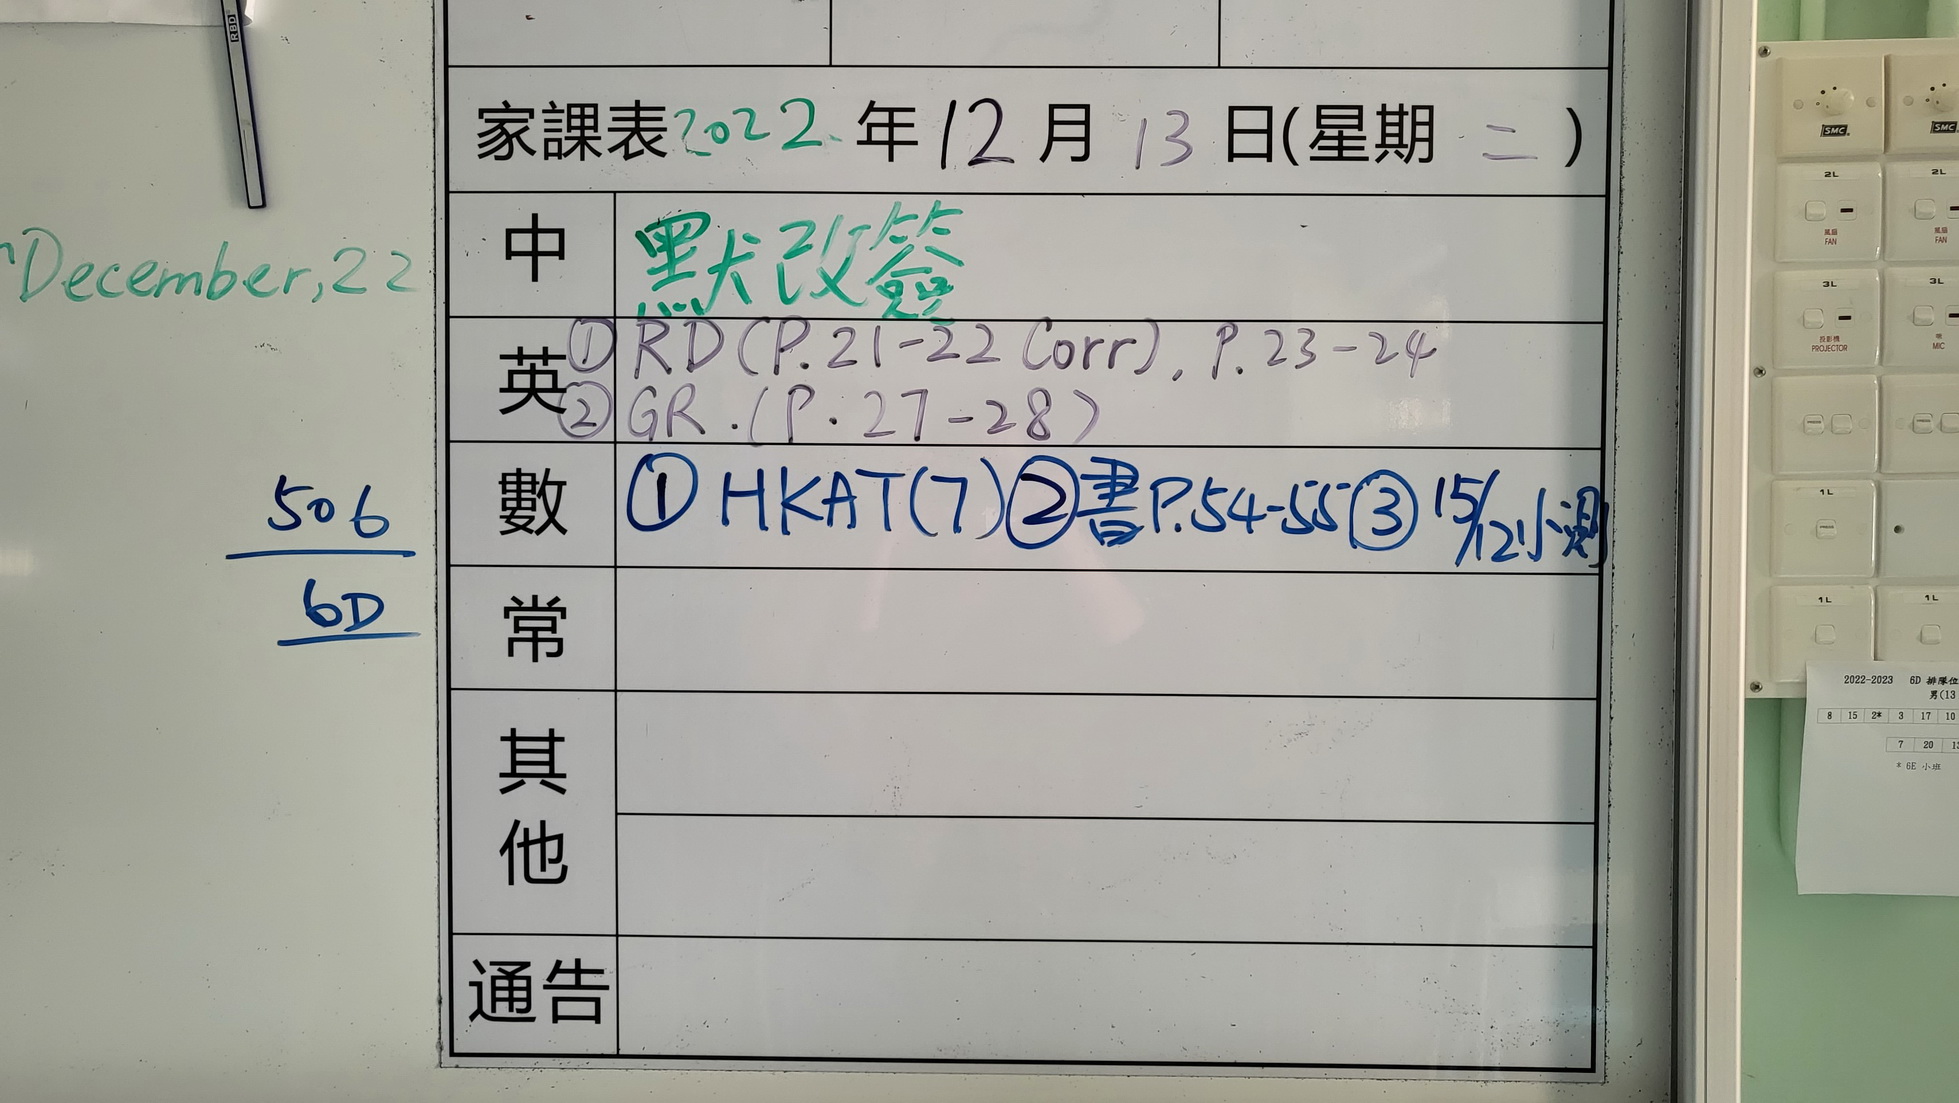 RBD
December, 22
506
6D
家課表 2022 年 12 月 13 日(星期 二 )
中 默改簽
英 ① RD (P.21-22 Corr), P. 23-24
② GR. (P. 27-28)
數 ① HKAT(7) ② 書P.54-55 ③ 15/12小測
常
其他
通告
SMC SMC
2L 2L
風扇 FAN 風扇 FAN
3L 3L
投影機 PROJECTOR 咪 MIC
1L
1L 1L
2022-2023 6D 排隊位
男(13
8 15 2* 3 17 10
7 20 13
* 6E 小班